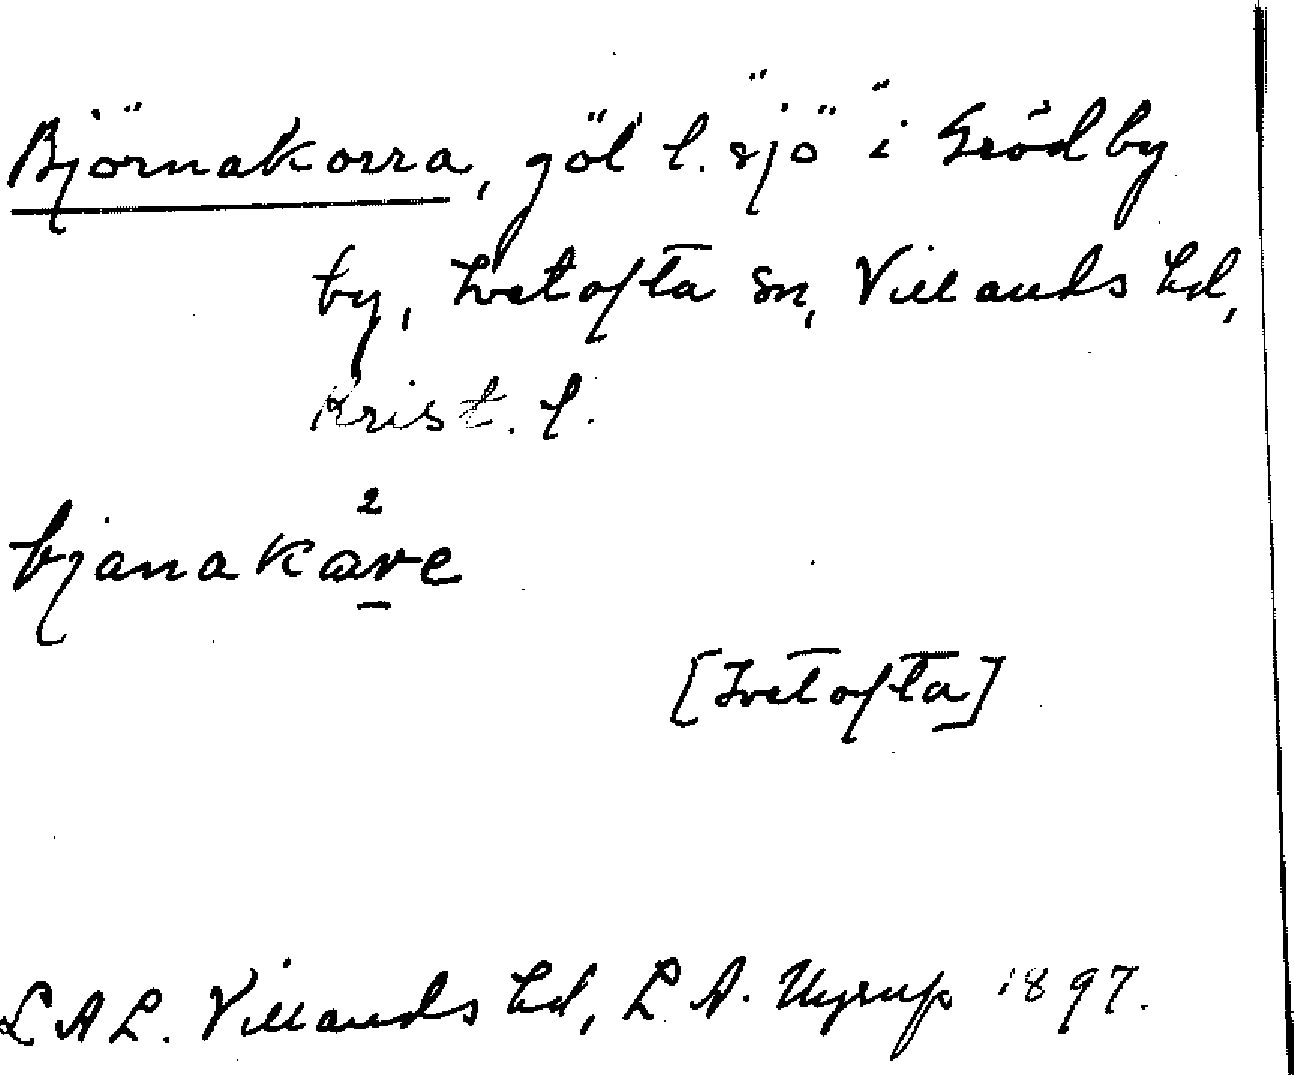 Björnakorra, göl l. "sjö" i Grödby
by, Ivetofta sn, Villands hd,
Krist. l.
bjanakåre
2
[Ivetofta]
LAL. Villands hd, L A. 1897.